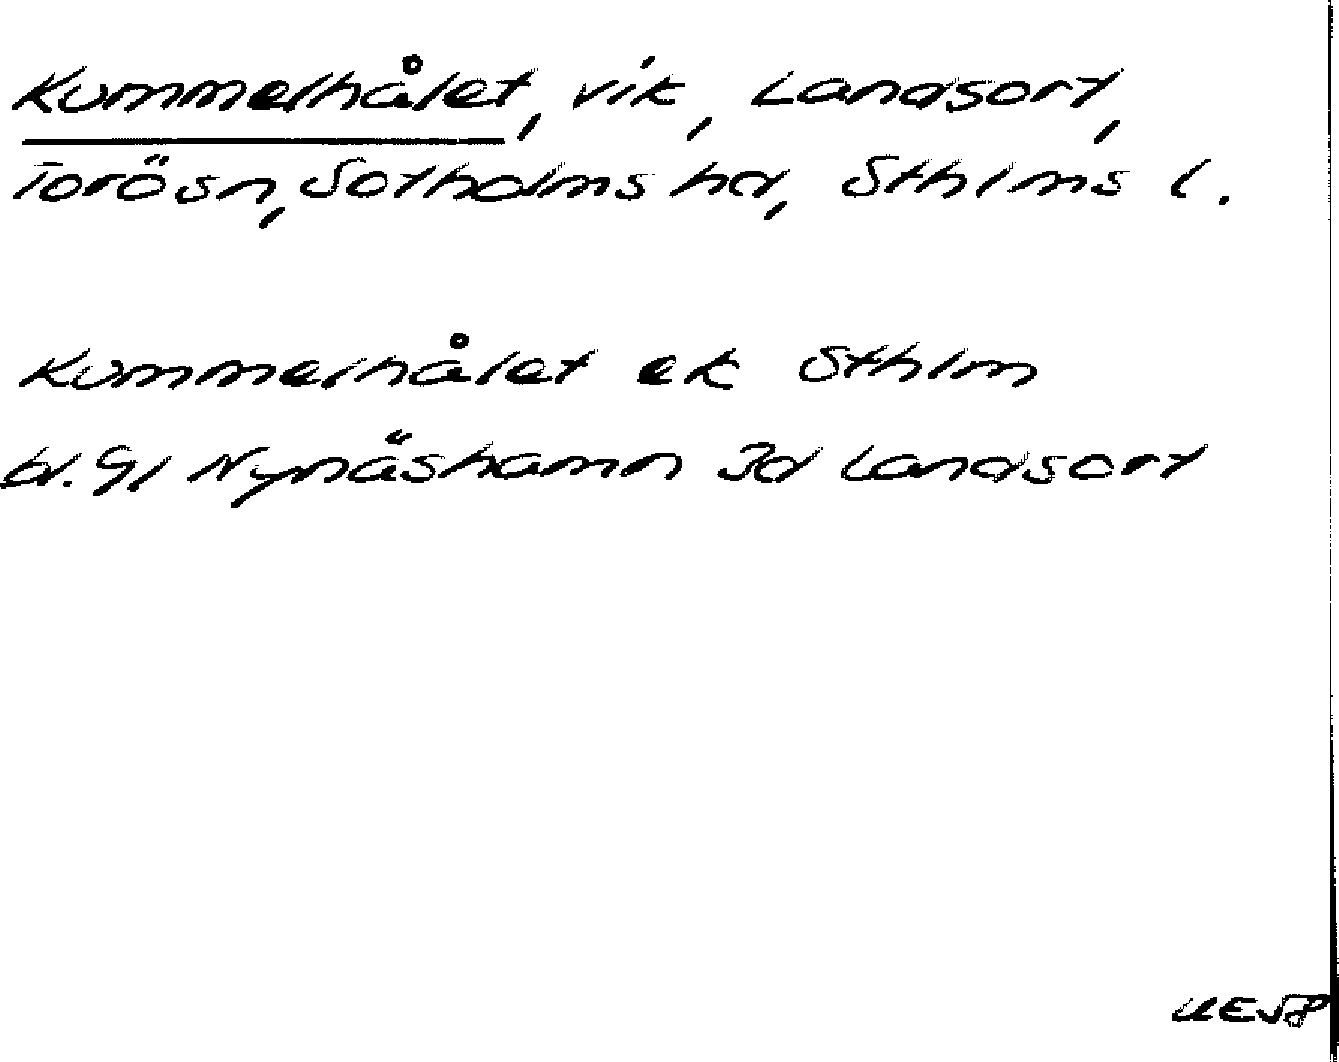 Kummelhålet, vik, Landsort,
Torösn, Sotholms hd, Sthlms l.
Kummelhålet ek Sthlm
bl. 9I Nynäshamn 3d Landsort